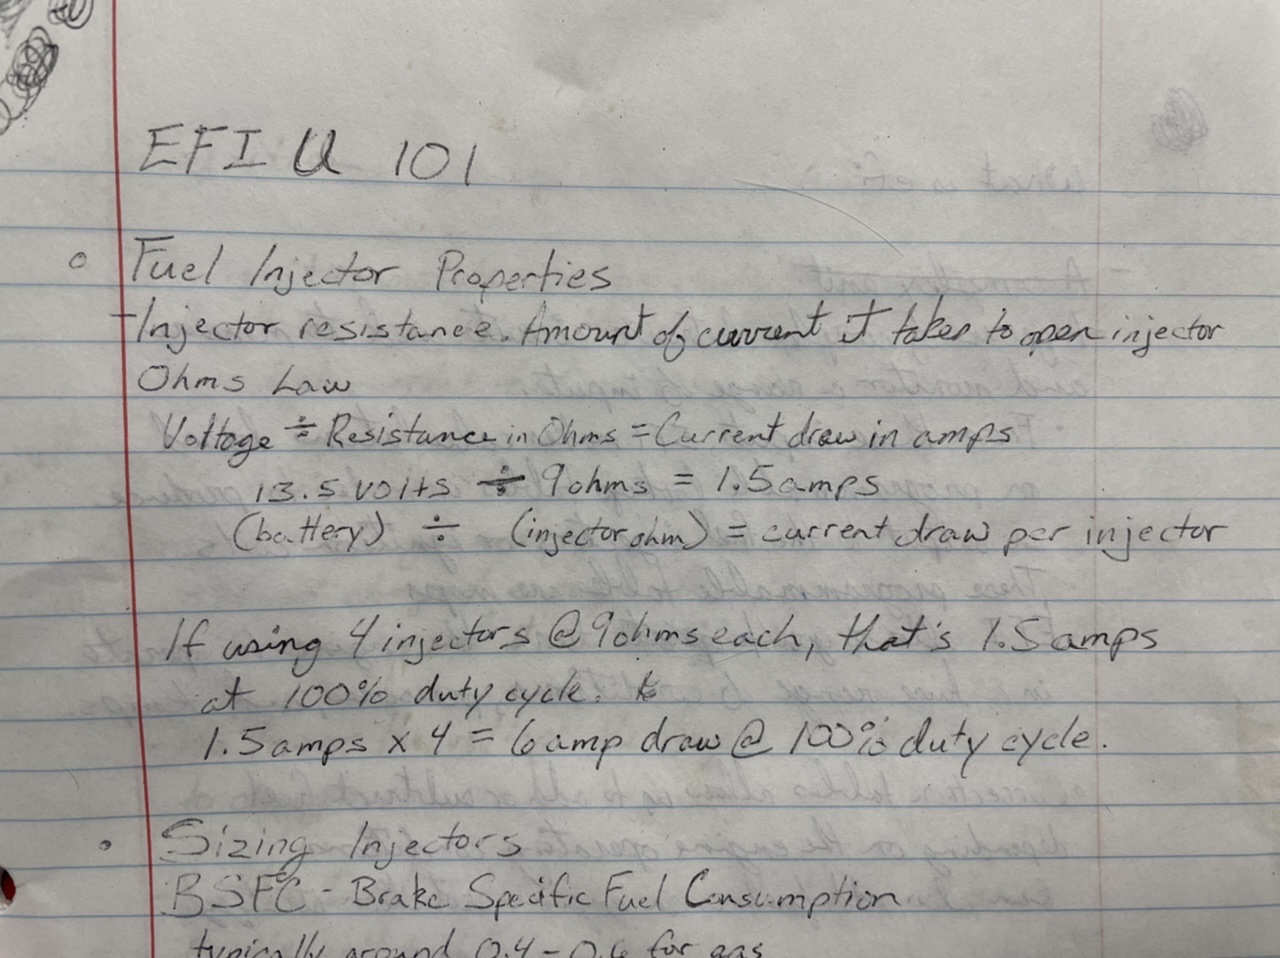 EFI U 101
Fuel Injector Properties
- Injector resistance. Amount of current it takes to open injector
Ohms Law
Voltage ÷ Resistance in Ohms = Current draw in amps
13.5 volts ÷ 9 ohms = 1.5 amps
(battery) ÷ (injector ohm) = current draw per injector
If using 4 injectors @ 9 ohms each, that's 1.5 amps
at 100% duty cycle.
1.5 amps x 4 = 6 amp draw @ 100% duty cycle.
Sizing Injectors
BSFC - Brake Specific Fuel Consumption
typically around 0.4 - 0.6 for gas